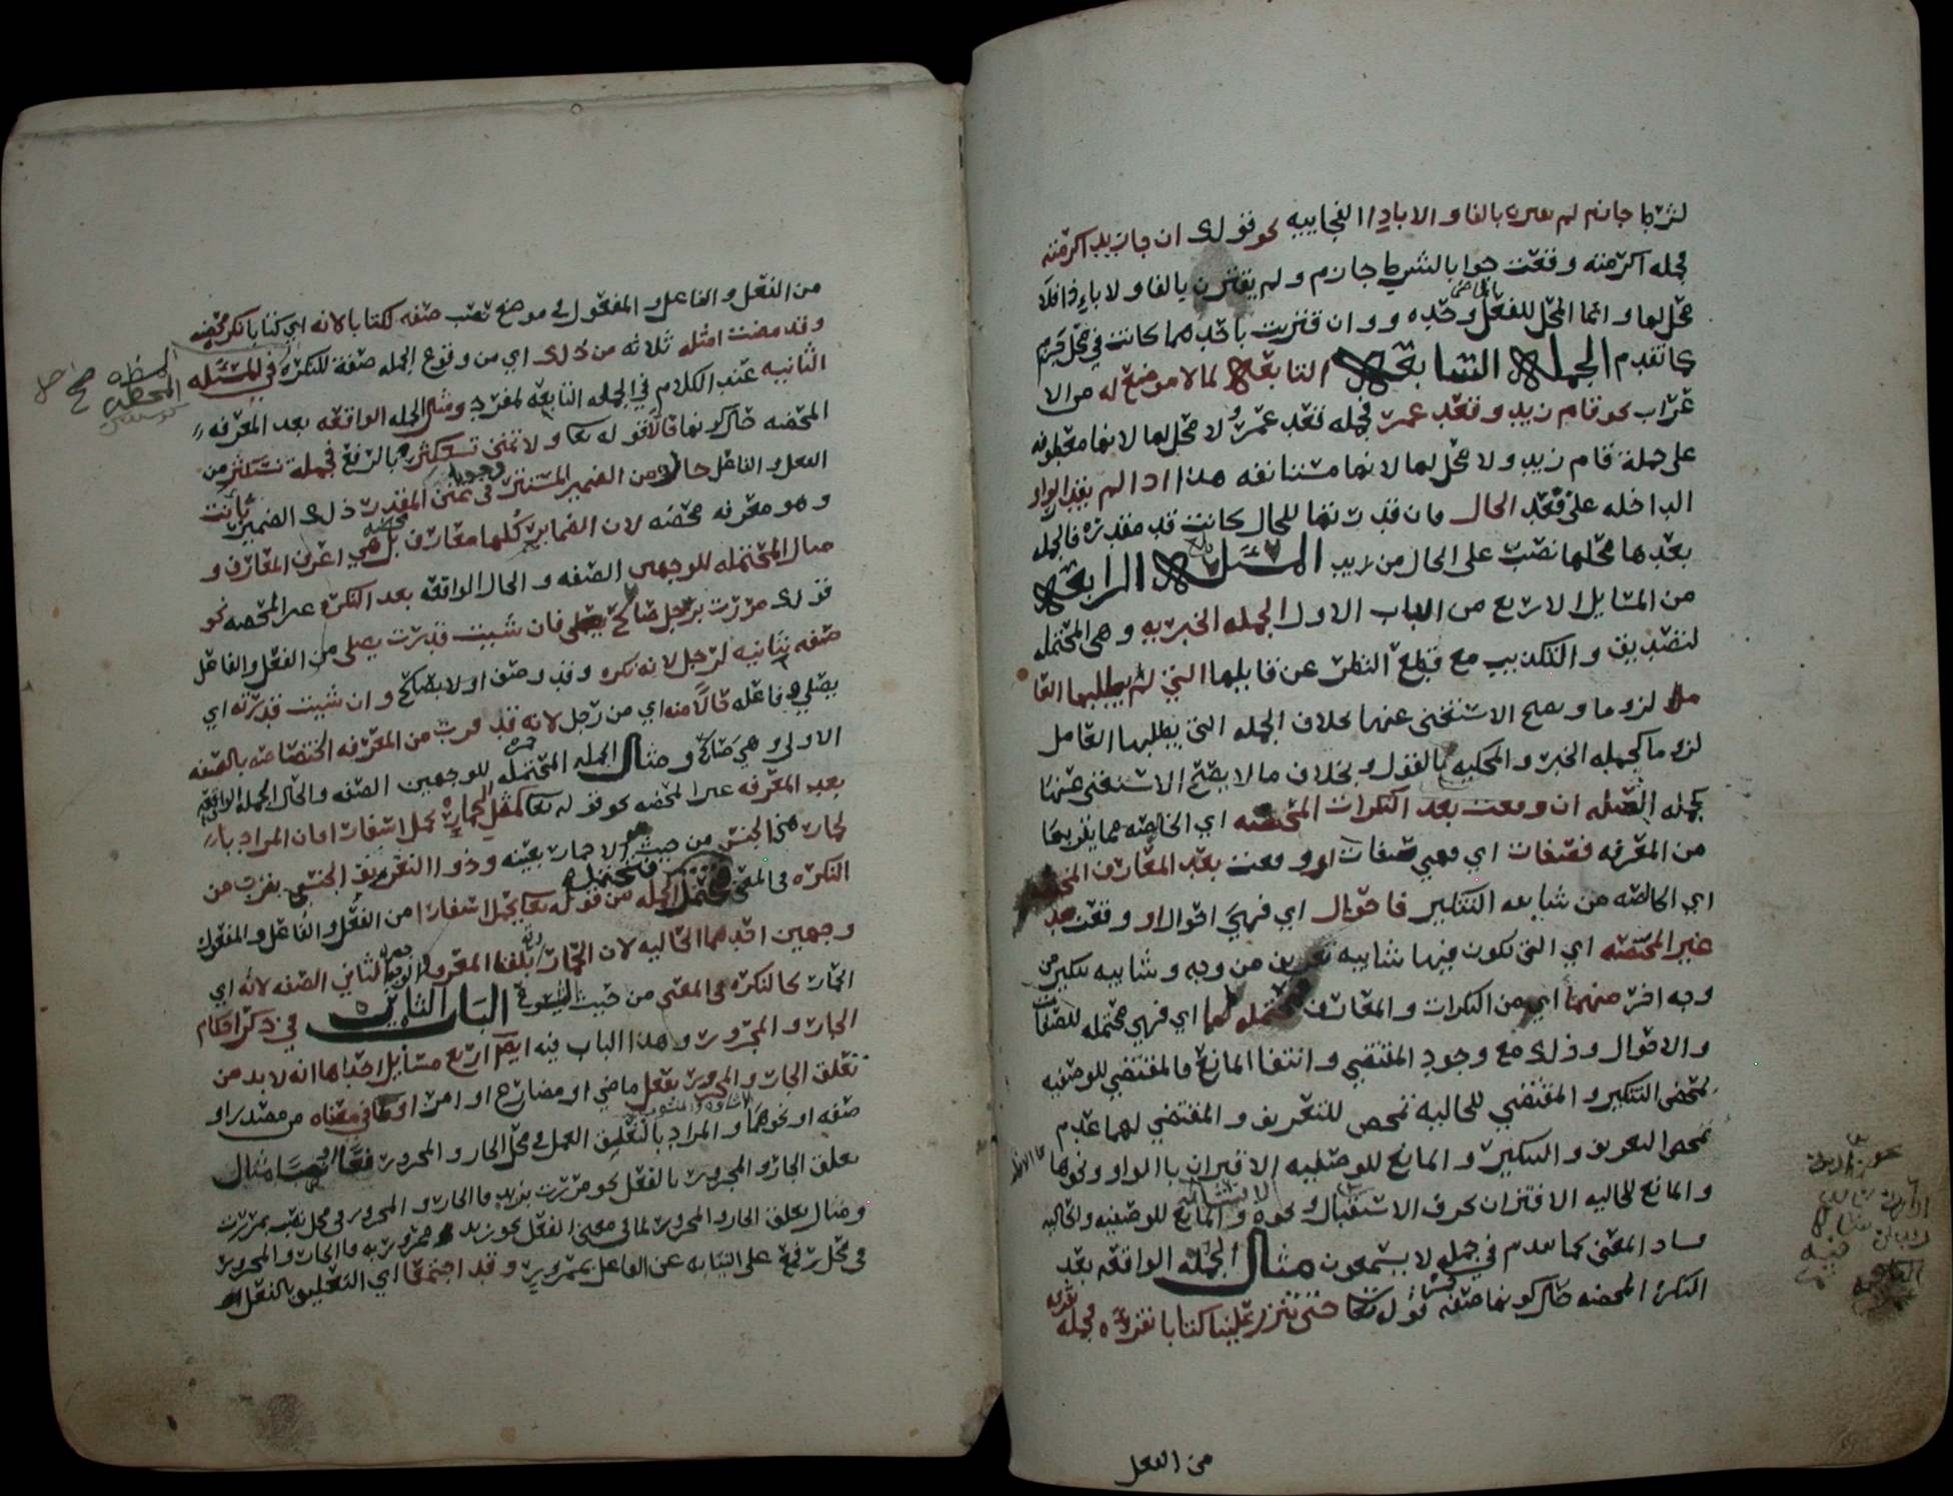 لشرط جازم لم يقترن بالفا ولا باذا الفجاييه نحو قولك ان جا زيد اكرمته
فجمله اكرمته وقعت جوابا لشرط جازم ولم يقترن بالفا ولا باذا فلا
محل لها وانما المحل للفعل وحده وان قترنت باحدهما كانت في محل جزم
كما تقدم الجملة السابعة التابعة لما لا موضع له من الا
عراب نحو قام زيد وقعد عمر فجمله قعد عمر لا محل لها لانها معطوفه
على جملة قام زيد ولا محل لها لانها مستانفه هذا اذا لم يقدر الواو
الداخله على قعد الحال فان قدرتها للحال كانت قد مقدره فالجمله
بعدها محلها نصب على الحال من زيد المسئلة الرابعة
من المسايل الاربع من الباب الاول الجمله الخبريه وهي المحتمله
لتصديق والتكذيب مع قطع النظر عن قايلها التي لم يطلبها العا
مل لزوما ويصح الاستغنى عنها بخلاف الجمله التي يطلبها العامل
لزوما كجمله الخبر والمحكيه بالقول وبخلاف ما لا يصح الاستغنى عنها
كجمله الصله ان وقعت بعد النكرات المحضه اي الخالصه مما يقربها
من المعرفه فصفات اي فهي صفات او وقعت بعد المعارف المحضه
اي الخالصه من شايبه التنكير فاحوال اي فهي احوال او وقعت بعد
غير المحضه اي التي تكون فيها شايبه تعريف من وجه وشايبه تنكير من
وجه اخر منهما اي من النكرات والمعارف فمحتمله لهما اي فهي محتمله للصفات
والاحوال وذلك مع وجود المقتضي وانتفا المانع فالمقتضي للوصفيه
تمحض التنكير والمقتضي للحاليه تمحض للتعريف والمقتضي لهما عدم
تمحض التعريف والتنكير والمانع للوصفيه الاقتران بالواو ونحوها
والمانع للحاليه الاقتران بحرف الاستقبال ونحوه والمانع للوصفيه والحاليه
فساد المعنى كما تقدم في جمله لا يسمعون مثال الجمله الواقعه بعد
النكرة المحضه حال كونها صفه قوله تعا حتى تنزل علينا كتابا نقرؤه فجمله نقرؤه
من الفعل
من الفعل والفاعل والمفعول في موضع نصب صفه لكتابا لانه اي كتابا نكره محضه
وقد مضت امثله ثلاثه من ذلك اي من وقوع الجمله صفة للنكره في المسئله
الثانيه عند الكلام في الجمله التابعه لمفرد ومثال الجمله الواقعه بعد المعرفه
المحضه حال كونها حالا قوله تعا ولا تمنن تستكثر بالرفع فجملة تستكثر من
الفعل والفاعل حال من الضمير المستتر وجوبا في تمنن المقدر بانت ذلك الضمير
وهو معرفه محضه لان الضماير كلها معارف محضه بل هي اعرف المعارف و
مثال المحتمله للوجهين الصفه والحال الواقعه بعد النكره غير المحضه نحو
قولك مررت برجل صالح يصلي فان شيت قدرت يصلي من الفعل والفاعل
صفه ثانيه لرجل لانه نكره وقد وصف اولا بصالح وان شيت قدرته اي
يصلي وفاعله حالا منه اي من رجل لانه قد قرب من المعرفه اختصاصه بالصفه
الاولى وهي صالح ومثال الجمله المحتمله للوجهين الصفه والحال الجمله الواقعه
بعد المعرفه غير المحضه نحو قوله تعا كمثل الحمار يحمل اسفارا فان المراد با
لحمار هنا الجنس من حيث هو لا حمار بعينه وذو التعريف الجنسي يقرب من
النكره في المعنى فتحتمل الجمله من قوله تعا يحمل اسفارا من الفعل والفاعل والمفعول
وجهين احدهما الحاليه لان الحمار بلفظ المعرفه والوجه الثاني الصفه لانه اي
الحمار كالنكره في المعنى من حيث الشيوع الباب الثاني في ذكر احكام
الجار والمجرور وهذا الباب فيه ايضا اربع مسايل احداها انه لا بد من
تعلق الجار والمجرور بفعل ماضي او مضارع او امر او بما في معناه من مصدر او
صفه او نحوهما والمراد بالتعليق العمل في محل الجار والمجرور مثال
تعلق الجار والمجرور بالفعل نحو مررت بزيد فالجار والمجرور في محل نصب بمررت
ومثال تعلق الجار والمجرور لما في معنى الفعل نحو زيد ممرور به فالجار والمجرور
في محل رفع على النيابه عن الفاعل بممرور وقد اجتمعا اي التعليق بالفعل